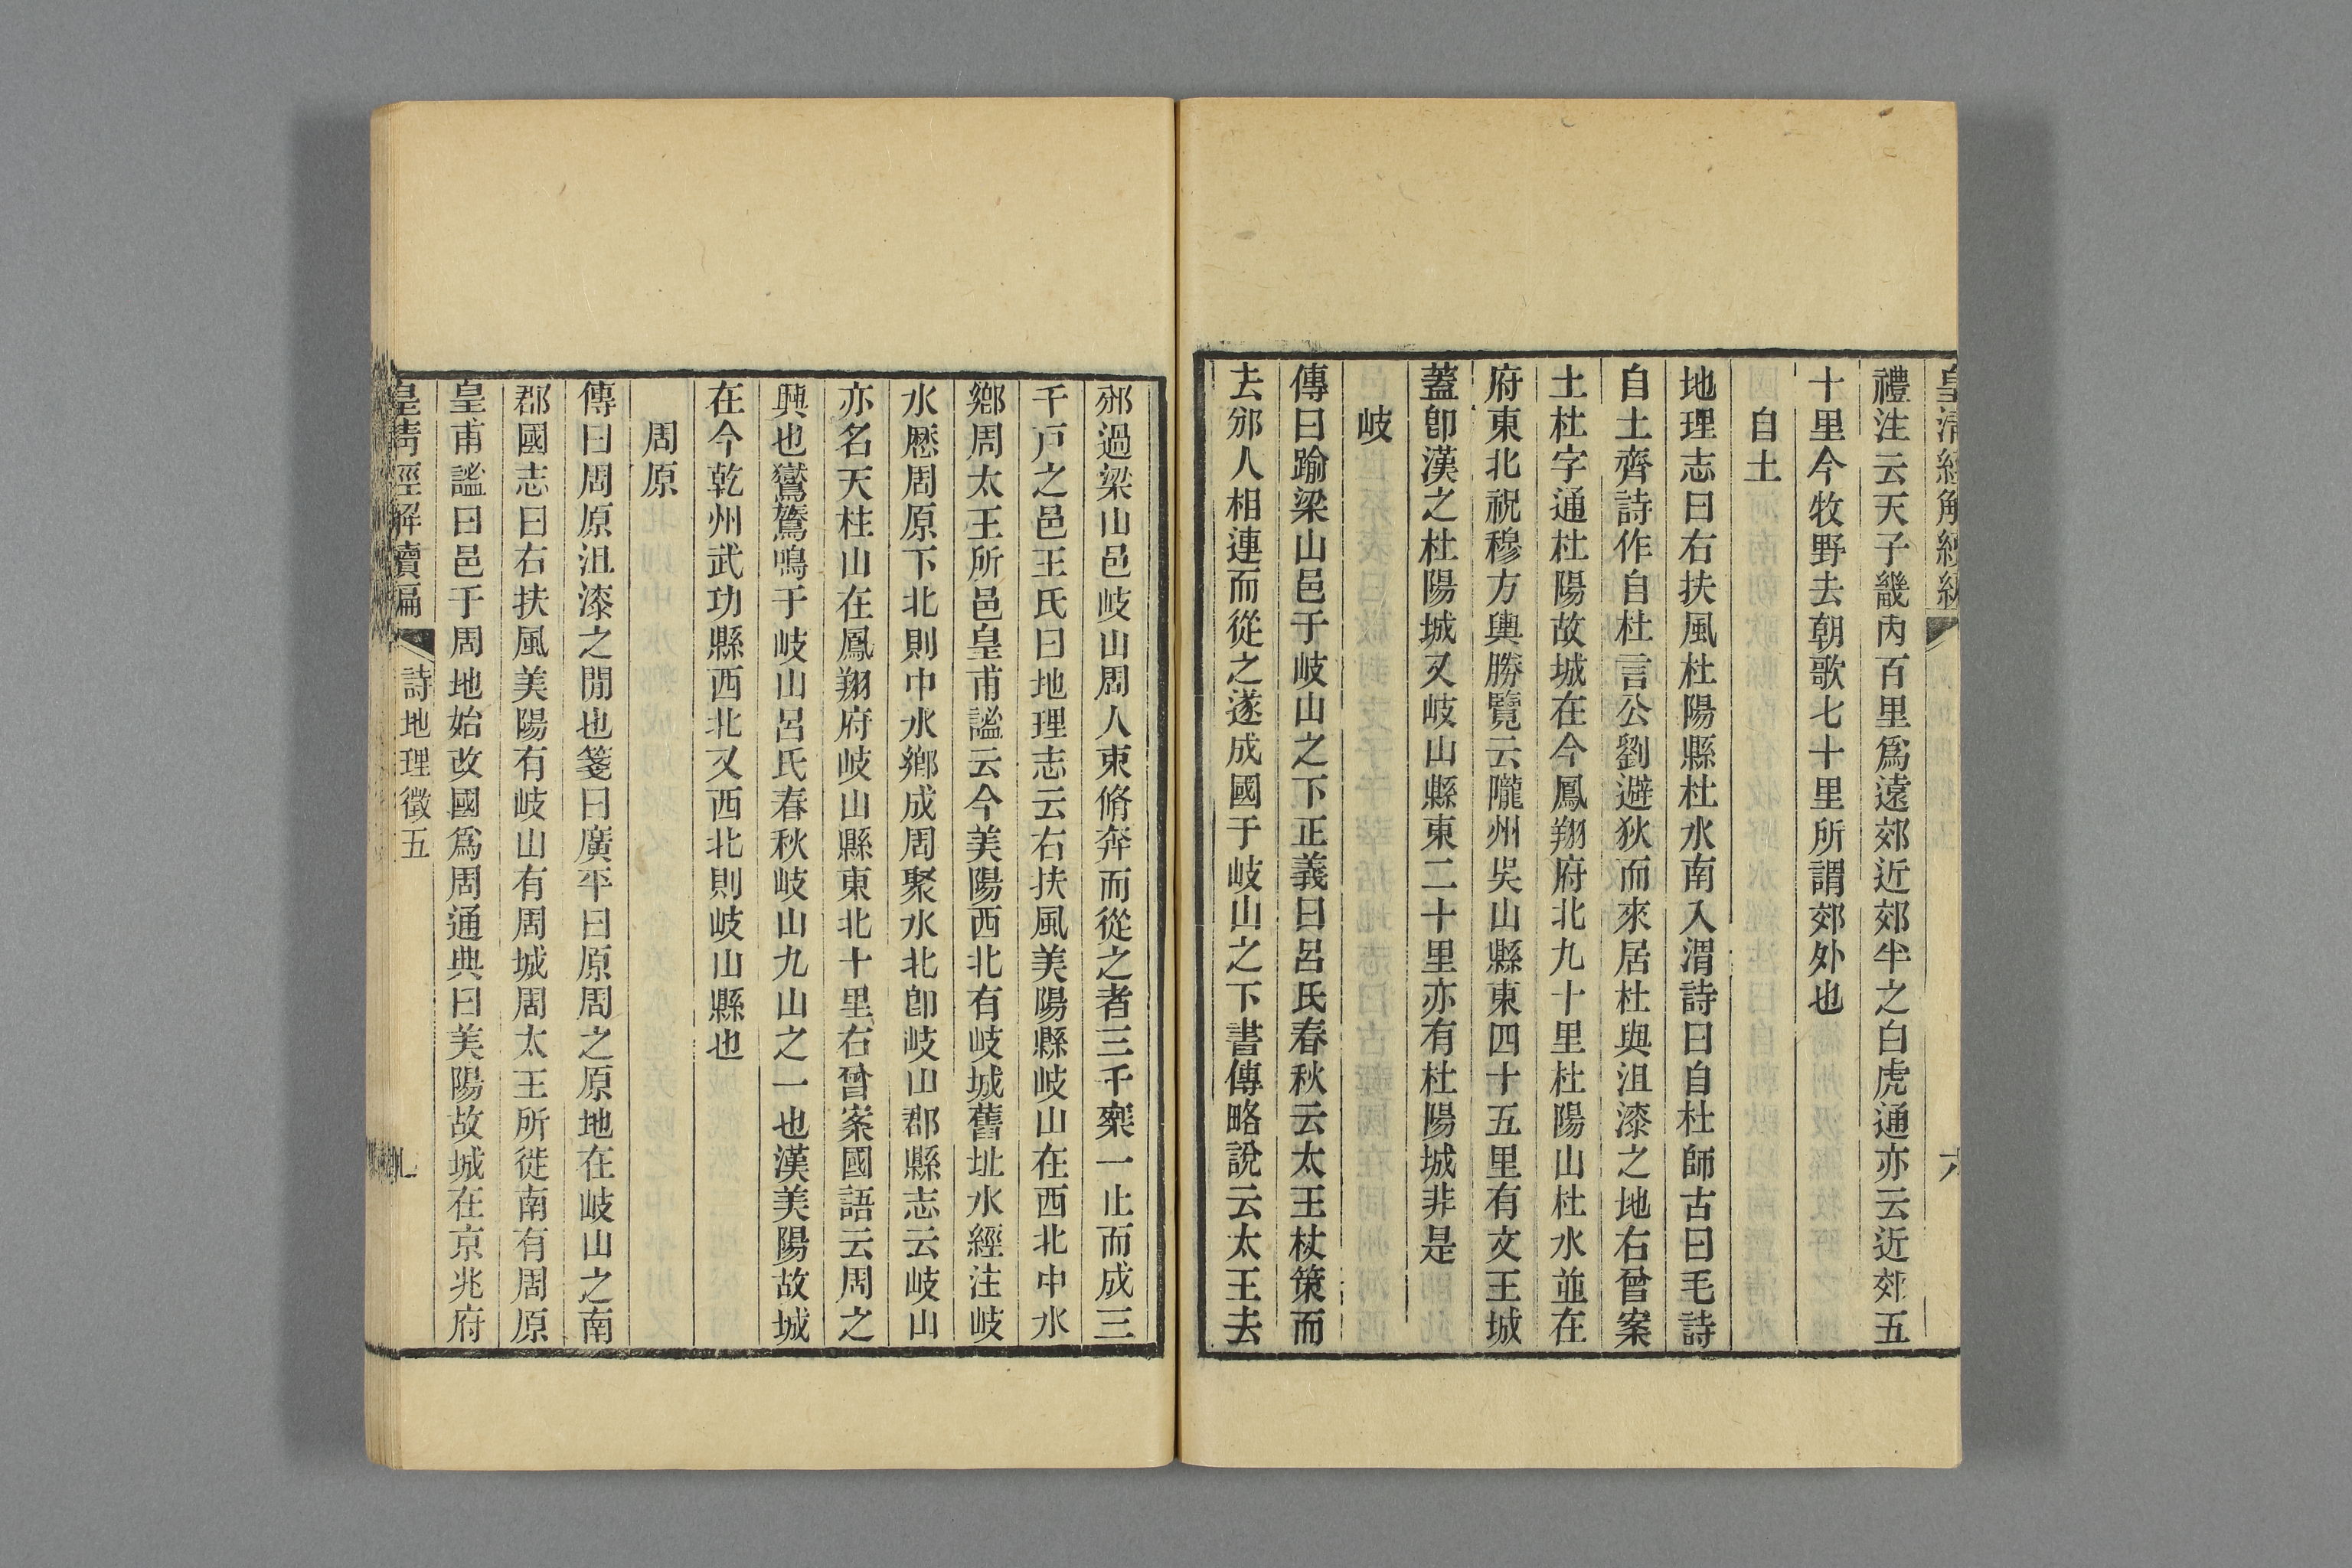 皇清經解續編
六
禮注云天子畿內百里爲遠郊近郊半之白虎通亦云近郊五
十里今牧野去朝歌七十里所謂郊外也
自土
地理志曰右扶風杜陽縣杜水南入渭詩曰自杜師古曰毛詩
自土齊詩作自杜言公劉避狄而來居杜與沮漆之地右曾案
土杜字通杜陽故城在今鳳翔府北九十里杜陽山杜水並在
府東北祝穆方輿勝覽云隴州吳山縣東四十五里有文王城
蓋卽漢之杜陽城又岐山縣東二十里亦有杜陽城非是
岐
傳曰踰梁山邑于岐山之下正義曰呂氏春秋云太王杖策而
去邠人相連而從之遂成國于岐山之下書傳略說云太王去
邠過梁山邑岐山周人東脩奔而從之者三千䅽一止而成三
千戸之邑王氏曰地理志云右扶風美陽縣岐山在西北中水
鄉周太王所邑皇甫謐云今美陽西北有岐城舊址水經注岐
水歷周原下北則中水鄉成周聚水北卽岐山郡縣志云岐山
亦名天柱山在鳳翔府岐山縣東北十里右曾案國語云周之
興也鸑鷟鳴于岐山呂氏春秋岐山九山之一也漢美陽故城
在今乾州武功縣西北又西北則岐山縣也
周原
傳曰周原沮漆之閒也箋曰廣平曰原周之原地在岐山之南
郡國志曰右扶風美陽有岐山有周城周太王所徙南有周原
皇甫謐曰邑于周地始改國爲周通典曰美陽故城在京兆府
皇清經解續編
詩地理徵五